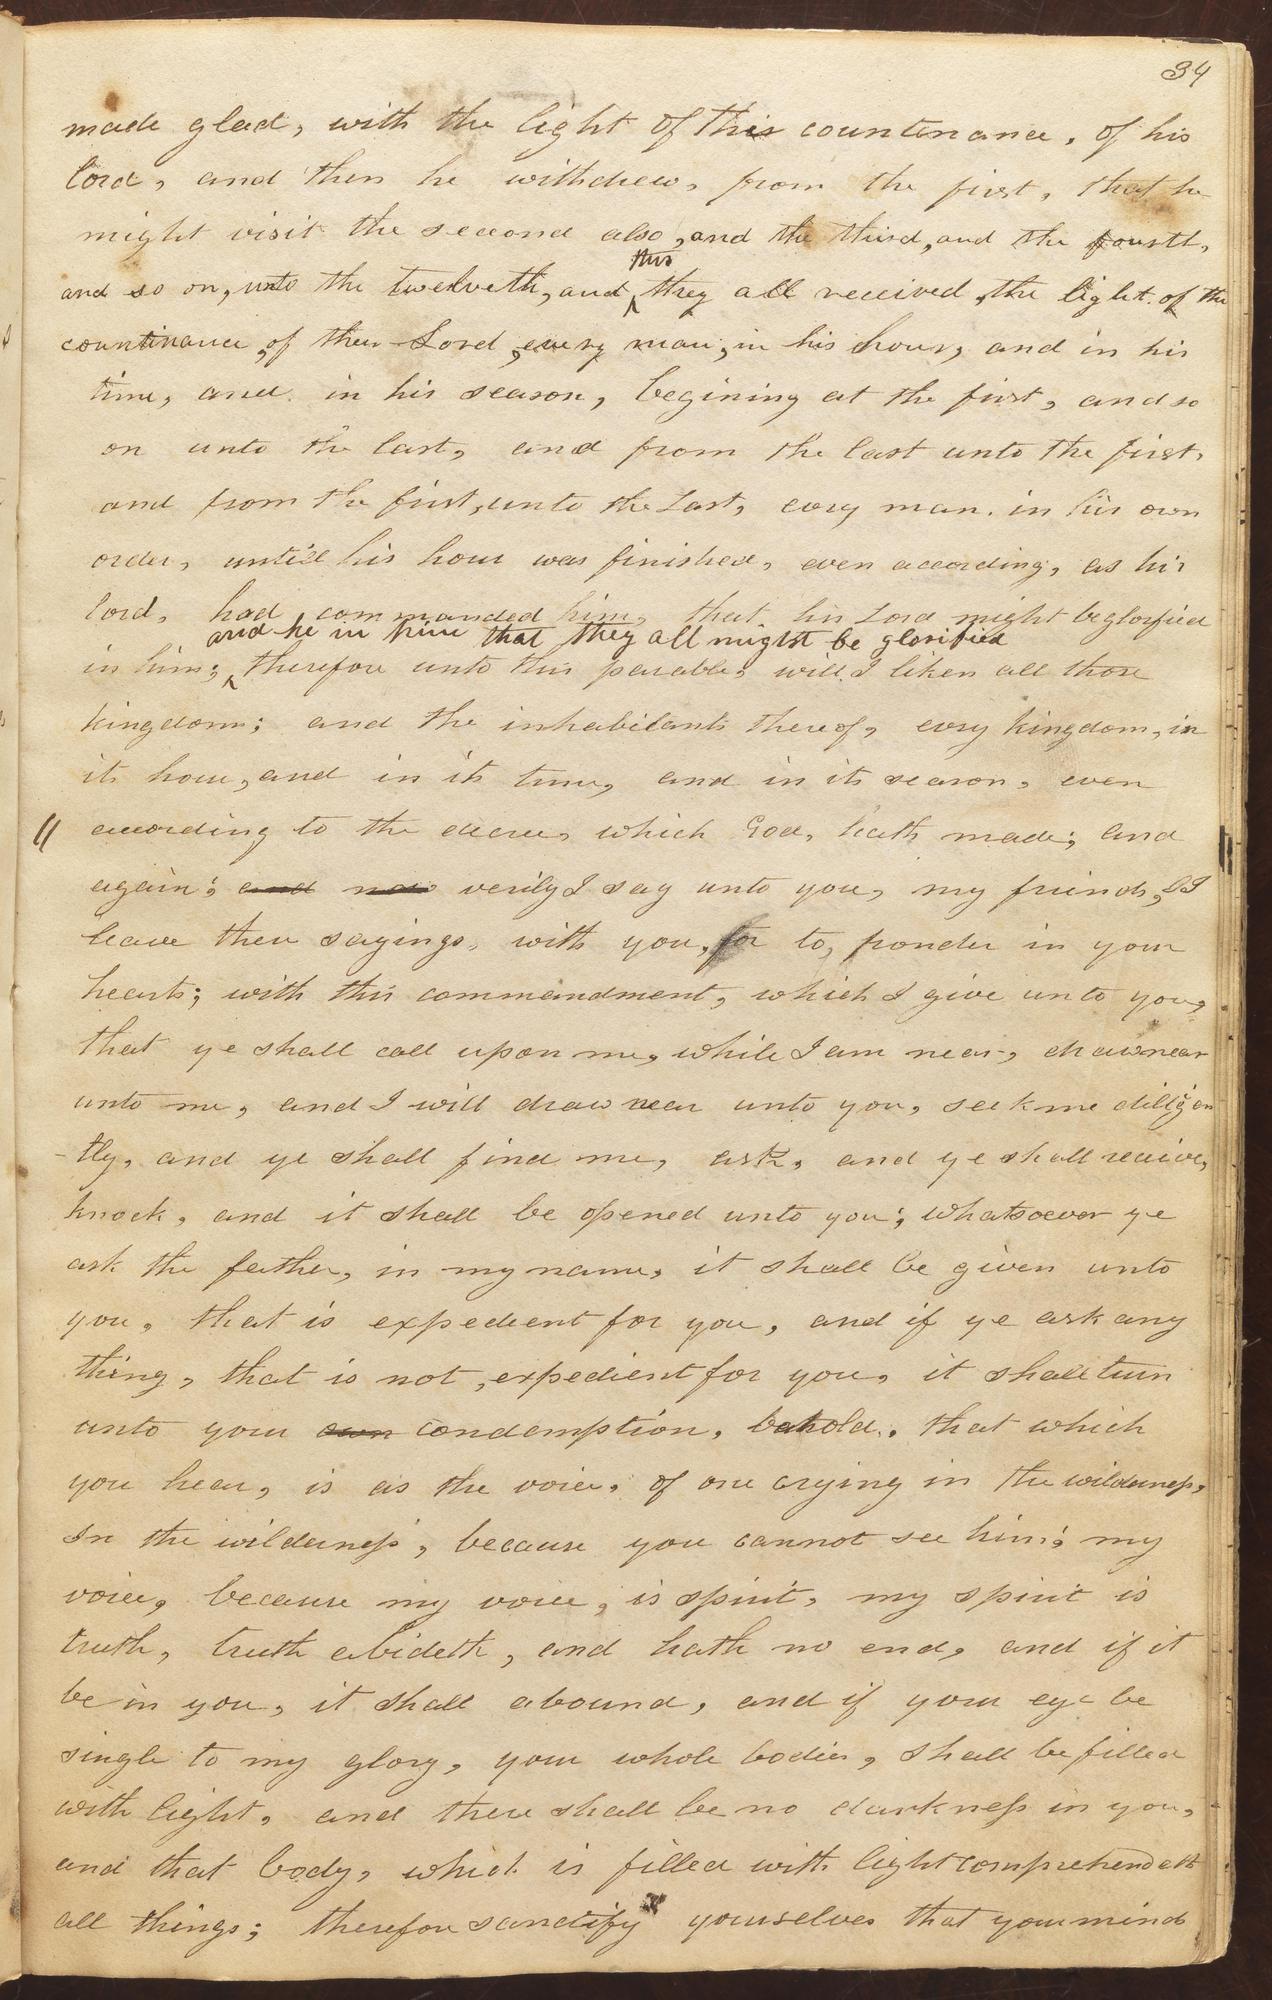 34
made glad, with the light of this countenance, of his
lord, and then he withdrew, from the first, that he
might visit the second also, and the third, and the fourth,
and so on, unto the twelveth, and ^thus they all received, the light of the
countinance, of their Lord, every man, in his hour, and in his
time, and in his season, begining at the first, and so
on unto the last, and from the last unto the first,
and from the first, unto the Last, evry man, in his own
order, untill his hour was finished, even according, as his
lord, had commanded him, that his Lord might be glorfied
and he in him that they all might be glorified
in him; ^ therefore unto this parable, will I liken all those
kingdoms; and the inhabitants thereof, evry kingdom, in
its hour, and in its time, and in its season, even
" according to the decree, which God, hath made; and
again; and now verily I say unto you, my friends, I
leave these sayings, with you, for to, ponder in your
hearts; with this commandment, which I give unto you,
that ye shall call upon me, while I am near, draw near
unto me, and I will draw near unto you, seek me dilligen
-tly, and ye shall find me, ask, and ye shall receive,
knock, and it shall be opened unto you; whatsoever ye
ask the father, in my name, it shall be given unto
you, that is expedient for you, and if ye ask any
thing, that is not, expedient for you, it shall turn
unto your own condemption, behold, that which
you hear, is as the voice, of one crying in the wilderness,
In the wilderness, because you cannot see him; my
voice, because my voice, is spirit, my spirit is
truth, truth abideth, and hath no end, and if it
be in you, it shall abound, and if your eye be
single to my glory, your whole bodies, shall be filled
with light, and there shall be no darkness in you,
and that body, which is filled with light comprehendeth
all things; therefore sanctify yourselves that your mind